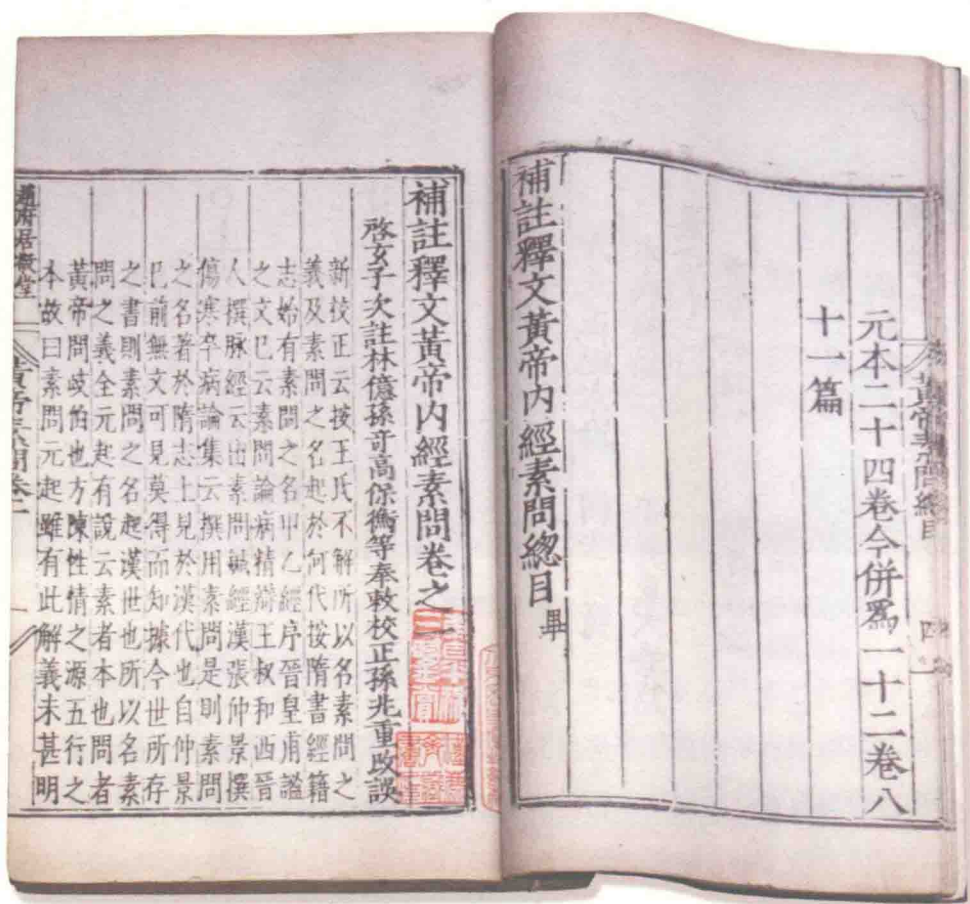 黃帝素問總目
四
元本二十四卷今併爲一十二卷八
十一篇
補註釋文黃帝内經素問總目畢
補註釋文黃帝内經素問卷之一
啓玄子次註林億孫竒高保衡等奉敕校正孫兆重改誤
新校正云按王氏不解所以名素問之
義及素問之名起於何代按隋書經籍
志始有素問之名甲乙經序晉皇甫謐
之文已云素問論病精辯王叔和西晉
人撰脉經云出素問鍼經漢張仲景撰
傷寒卒病論集云撰用素問是則素問
之名著於隋志上見於漢代也自仲景
已前無文可見莫得而知據今世所存
之書則素問之名起漢世也所以名素
問之義全元起有說云素者本也問者
黃帝問岐伯也方陳性情之源五行之
本故曰素問元起雖有此解義未甚明
趙府居敬堂
黃帝素問卷一